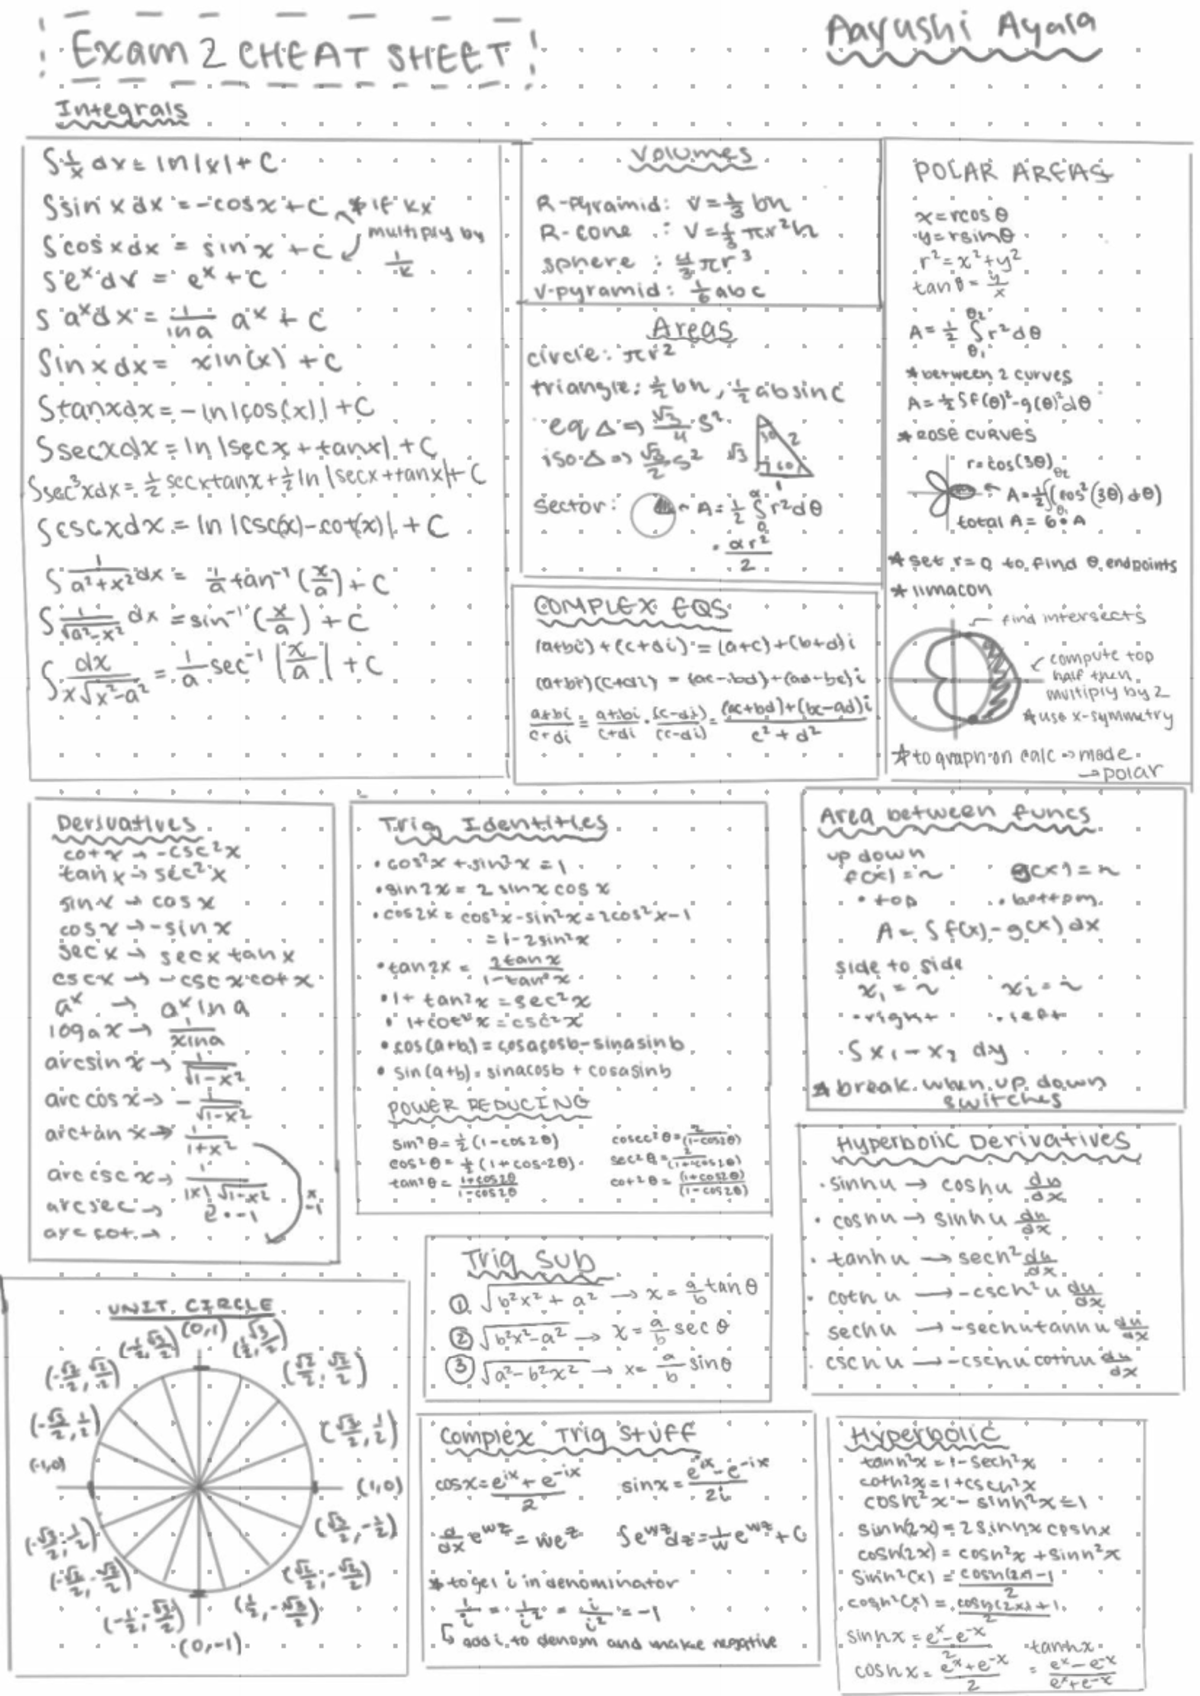 Exam 2 CHEAT SHEET!
Aayushi Ayala
Integrals
∫ 1/x dx = ln|x| + C
∫sin x dx = -cos x + C * if kx
multiply by 1/k
∫cos x dx = sin x + C
∫e^x dx = e^x + C
∫ a^x dx = 1/(ln a) a^x + C
∫ln x dx = x ln(x) + C
∫tanxdx = -ln|cos(x)| + C
∫secxdx = ln|secx + tanx| + C
∫sec³xdx = 1/2 secxtanx + 1/2 ln|secx+tanx| + C
∫cscxdx = ln|csc(x)-cot(x)| + C
∫ 1/(a²+x²) dx = 1/a tan⁻¹(x/a) + C
∫ 1/√(a²-x²) dx = sin⁻¹(x/a) + C
∫ dx/(x√(x²-a²)) = 1/a sec⁻¹|x/a| + C
Volumes
R-pyramid: V = 1/3 bh
R-cone : V = 1/3 πr²h
sphere : 4/3 πr³
V-pyramid: 1/6 abc
Areas
circle: πr²
triangle: 1/2 bh, 1/2 absinc
eq Δ ⇒ √3/4 s²
iso Δ ⇒ √3/2 s²
√3 30 2 60 1
sector: ← A = 1/2 ∫₀^α r²dθ
= αr²/2
COMPLEX EQS
(a+bi) + (c+di) = (a+c) + (b+d)i
(a+bi)(c+di) = (ac-bd)+(ad+bc)i
(a+bi)/(c+di) = (a+bi)/(c+di) · (c-di)/(c-di) = ((ac+bd)+(bc-ad)i)/(c²+d²)
POLAR AREAS
x = rcos θ
y = rsinθ
r² = x²+y²
tan θ = y/x
A = 1/2 ∫_θ₁^θ₂ r²dθ
* between 2 curves
A = 1/2 ∫f(θ)²-g(θ)²dθ
* ROSE CURVES
r=cos(3θ)
← A = 1/2 ∫_θ₁^θ₂ (cos²(3θ)dθ)
total A = 6 · A
* set r=0 to find θ endpoints
* limacon
find intersects
compute top
half then
multiply by 2
* use x-symmetry
* to graph on calc → mode
→ polar
Derivatives
cotx → -csc²x
tan x → sec²x
sinx → cosx
cosx → -sinx
secx → secx tanx
cscx → -cscxcotx
a^x → a^x ln a
logₐx → 1/(xlna)
arcsin x → 1/√(1-x²)
arccos x → -1/√(1-x²)
arctan x → 1/(1+x²)
arc csc x → 1/(|x|√(1-x²))
arcsec → 2·-1
arccot →
x -1
Trig Identities
• cos²x + sin²x = 1
• sin2x = 2 sinx cosx
• cos2x = cos²x-sin²x = 2cos²x-1
= 1-2sin²x
• tan2x = 2tanx/(1-tan²x)
• 1+ tan²x = sec²x
• 1+cot²x = csc²x
• cos(a+b) = cosacosb-sinasinb
• sin(a+b) = sinacosb + cosasinb
POWER REDUCING
sin²θ = 1/2 (1-cos2θ)
cos²θ = 1/2 (1+cos2θ)
tan²θ = (1+cos2θ)/(1-cos2θ)
cosec²θ = 2/(1-cos2θ)
sec²θ = 2/(1+cos2θ)
cot²θ = (1+cos2θ)/(1-cos2θ)
Area between funcs
up down
f(x) = ~ g(x) = ~
• top • bottom
A = ∫f(x)-g(x)dx
side to side
x₁ = ~ x₂ = ~
• right • left
∫x₁-x₂ dy
* break when up down
switches
Hyperbolic Derivatives
• sinhu → coshu du/dx
• coshu → sinhu du/dx
• tanhu → sech² du/dx
• coth u → -csch²u du/dx
• sechu → -sechutanhu du/dx
• cschu → -cschucothu du/dx
UNIT CIRCLE
(-1/2, √3/2) (0,1) (1/2, √3/2)
(-√2/2, √2/2) (√2/2, √2/2)
(-√3/2, 1/2) (√3/2, 1/2)
(-1,0) (1,0)
(-√3/2, -1/2) (√3/2, -1/2)
(-√2/2, -√2/2) (√2/2, -√2/2)
(-1/2, -√3/2) (1/2, -√3/2)
(0,-1)
Trig Sub
① √(b²x² + a²) → x = a/b tanθ
② √(b²x²-a²) → x = a/b secθ
③ √(a²-b²x²) → x = a/b sinθ
Complex Trig Stuff
cosx = (e^ix + e^-ix)/2 sinx = (e^ix - e^-ix)/2i
d/dx e^wz = we^z ∫e^wz dz = 1/w e^wz + C
* to get i in denominator
1/i = 1/i² = i/i² = -1
↳ add i to denom and make negative
Hyperbolic
tanh²x = 1-sech²x
coth²x = 1+csch²x
cosh²x - sinh²x = 1
sinh(2x) = 2sinhxcoshx
cosh(2x) = cosh²x + sinh²x
sinh²(x) = (cosh(2x)-1)/2
cosh²(x) = (cosh(2x)+1)/2
sinhx = (e^x-e^-x)/2
coshx = (e^x+e^-x)/2
tanhx
= (e^x-e^-x)/(e^x+e^-x)